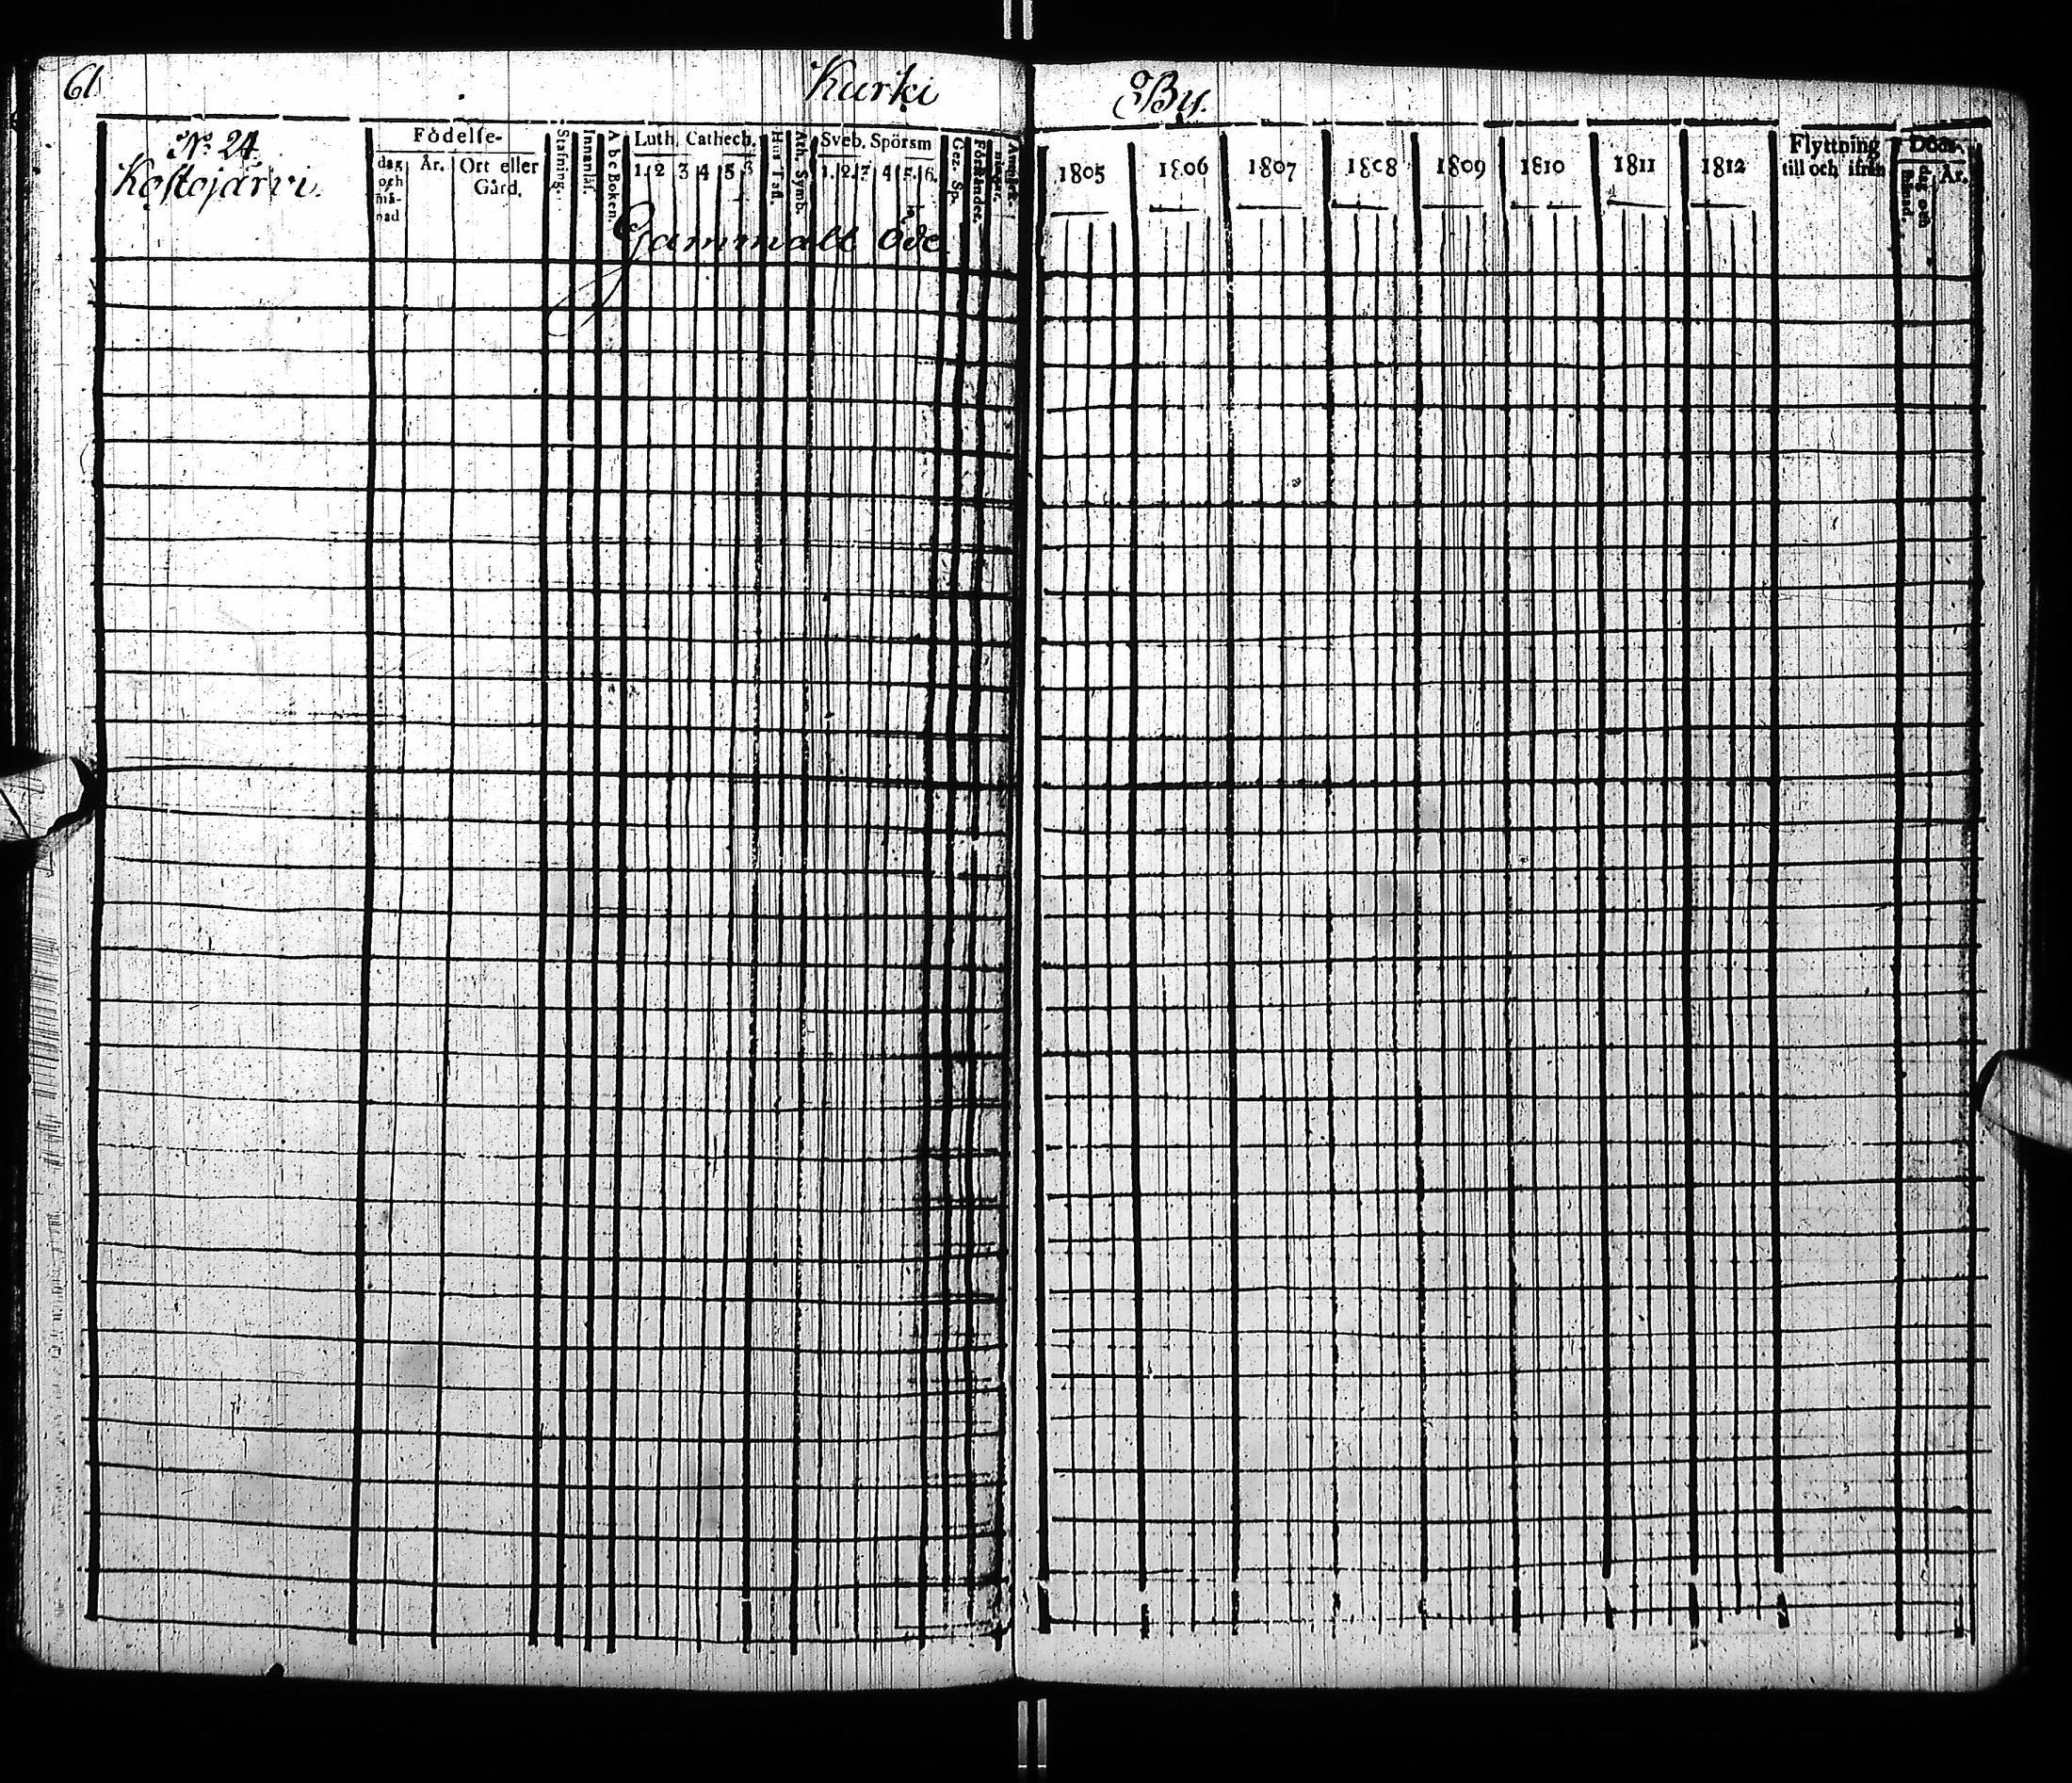 61 Kurki By.
No 24
Kostojärvi.
Födelse-
dag och må-nad
År.
Ort eller Gård.
Stafning.
Innanläs.
A b c Boken.
Luth. Cathech.
1. 2 3 4 5 6
Hus Tafl.
Ath. Symb.
Sveb. Spörsm
1. 2. 3 4 5. 6.
Gez. Sp.
Förständer.
Gammalt öde
1805 1806 1807 1808 1809 1810 1811 1812
Flyttning
till och ifrån
Död-
dag och månad.
År.